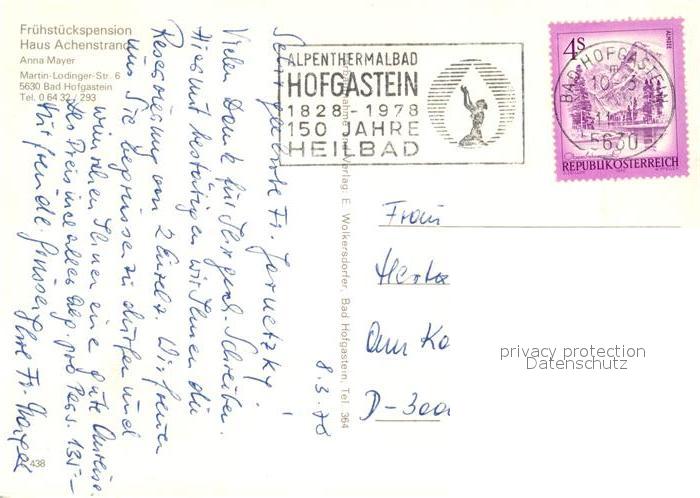 Frühstückspension
Haus Achenstrand
Anna Mayer
Martin-Lodinger-Str. 6
5630 Bad Hofgastein
Tel. 0 64 32 / 293
Sehr geehrte Fr. Jarnetzky!
Vielen Dank für Ihr gesch. Schreiben.
Hiermit bestätigen wir Ihnen die
Reservierung von 2 Einzelz. Wir freuen
uns Sie begrüssen zu dürfen und
wünschen Ihnen eine gute Anreise.
Der Preis incl. alles beg. pro Pers. 135.-
Mit freundl. Grüssen Ihre Fr. Mayer
8.3.78
438
Verlag: E. Wolkersdorfer, Bad Hofgastein, Tel. 364
ALPENTHERMALBAD
HOFGASTEIN
1828-1978
150 JAHRE
HEILBAD
4S
ALMSEE
REPUBLIK ÖSTERREICH
BAD HOFGASTEIN
5630
Frau
Herta
D-300
privacy protection
Datenschutz